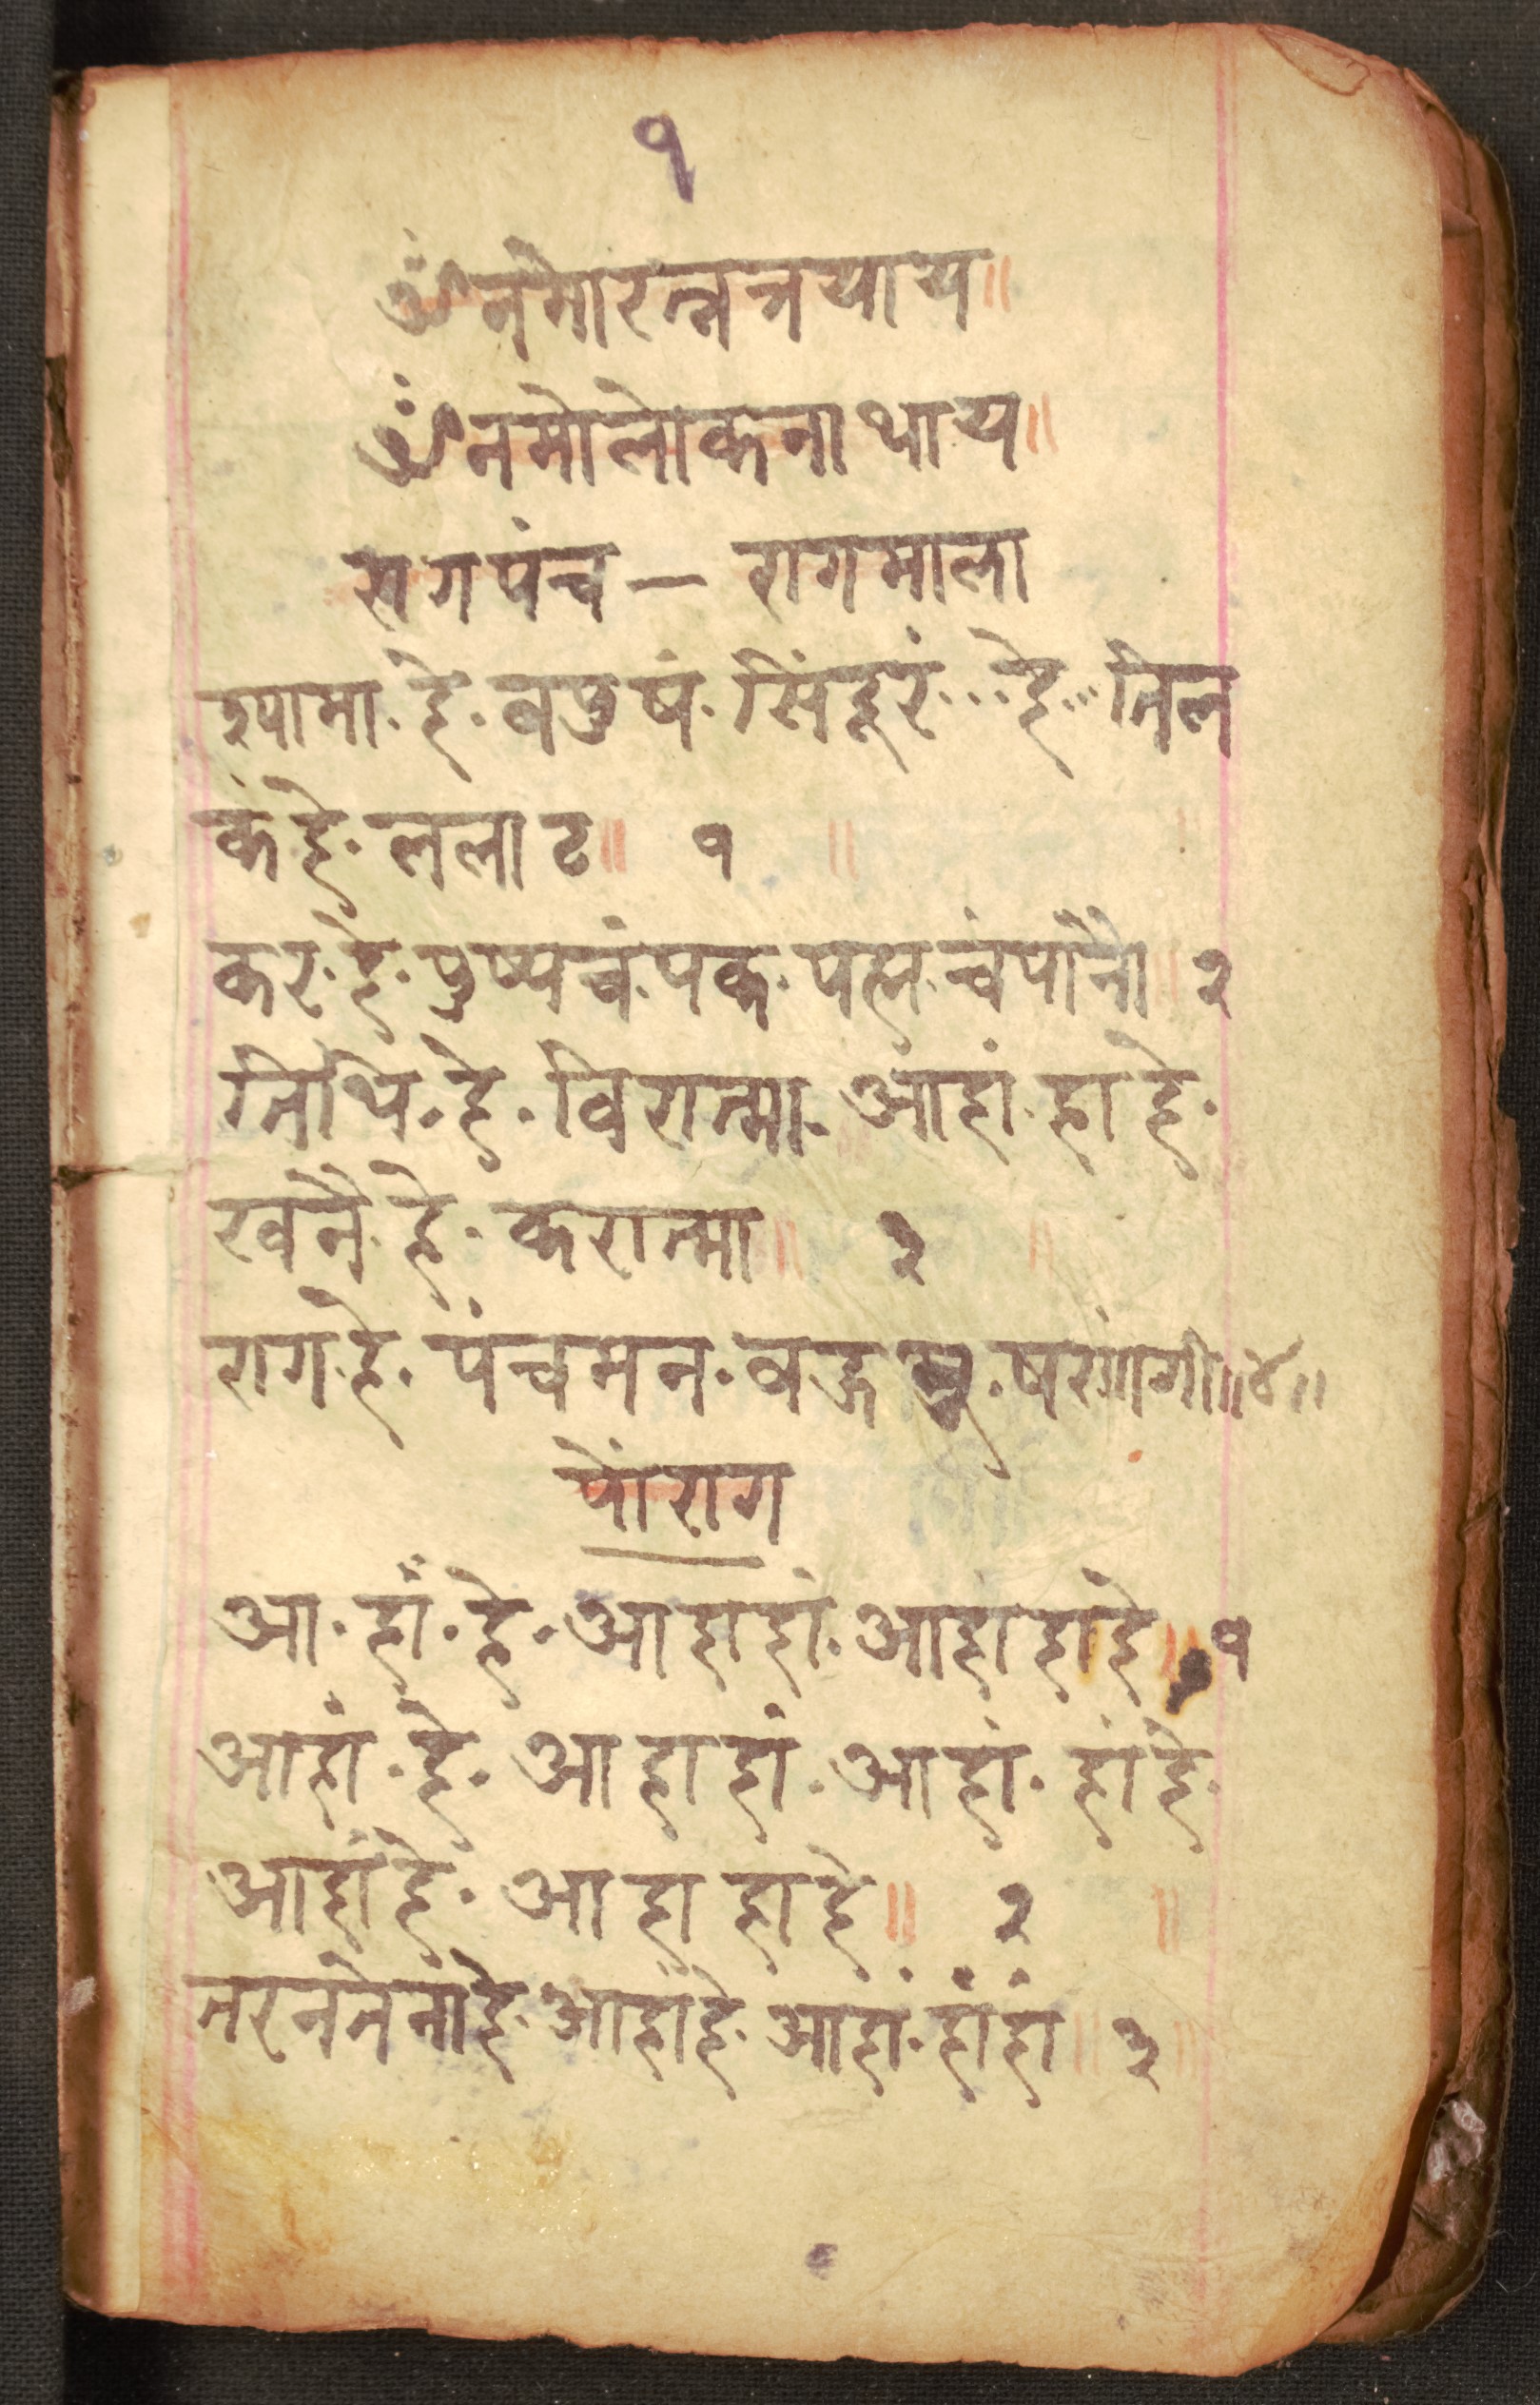 १
ॐ नमो रत्नत्रयाय॥
ॐ नमो लोकनाथाय॥
रागपंच — रागमाला
श्यामा. हे. वपुषं. सिंदूरं... हे... तिल
कं हे. ललाट॥ १ ॥
कर. हे. पुष्प चंपक. पद्म. चंपानै॥ २
तिथि. हे. विरात्मा. आंहां. हा हे.
रवनै. हे. करात्मा॥ ३ ॥
राग. हे. पंचमन. षरागंगी॥४॥
पोंराग
आ. हां. हे. आहाहां. आहाहाहे॥ १
आहां. हे. आहाहां. आहां. हांहे.
आहांहे. आहाहाहे॥ २ ॥
तरनतेनांहे. आहांहे. आंहां. हांहां॥ ३॥